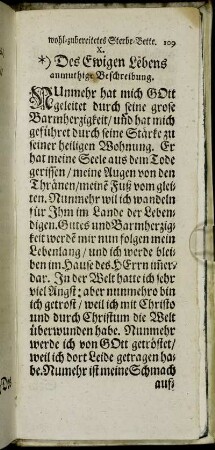 wohl-zubereitetes Sterbe-Bette. 109
X.
*) Des Ewigen Lebens
anmuthige Beschreibung.
NUnmehr hat mich GOtt
geleitet durch seine grose
Barmherzigkeit / und hat mich
geführet durch seine Stärke zu
seiner heiligen Wohnung. Er
hat meine Seele aus dem Tode
gerissen / meine Augen von den
Thränen / meinē Fuß vom glei-
ten. Nunmehr wil ich wandeln
für Jhm im Lande der Leben-
digen. Gutes und Barmherzig-
keit werdē mir nun folgen mein
Lebenlang / und ich werde blei-
ben im Hause des HErrn im̄er-
dar. Jn der Welt hatte ich sehr
viel Angst: aber nunmehro bin
ich getrost / weil ich mit Christo
und durch Christum die Welt
überwunden habe. Nunmehr
werde ich von GOtt getröstet /
weil ich dort Leide getragen ha-
be. Numehr ist meine Schmach
auf-